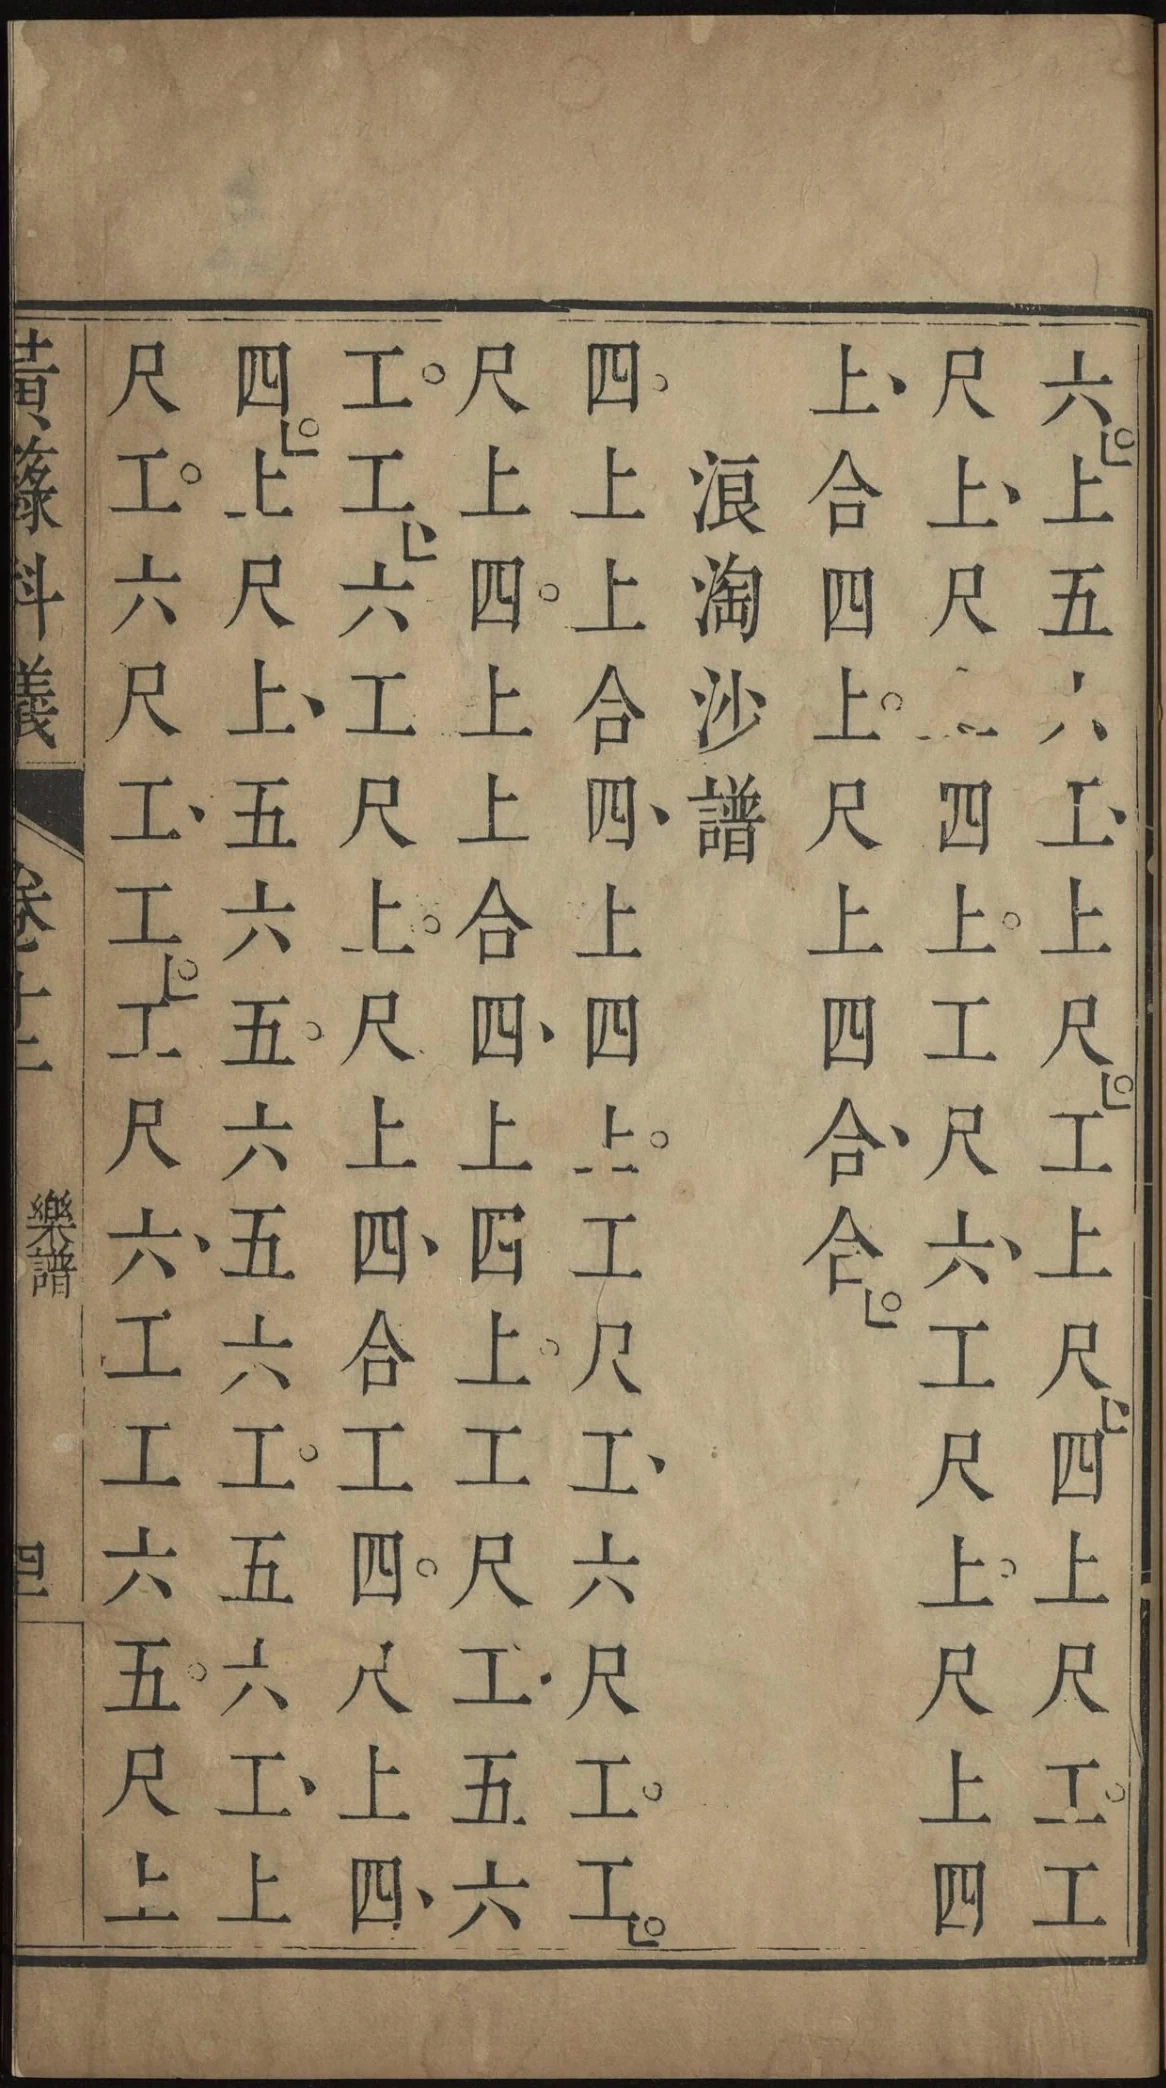 六上五六工上尺工上尺四上尺工工
尺上尺四上工尺六工尺上尺上四
上合四上尺上四合合
浪淘沙譜
四上上合四上四上工尺工六尺工工
尺上四上上合四上四上工尺工五六
工工六工尺上尺上四合工四尺上四
四上尺上五六五六五六工五六工上
尺工六尺工工工尺六工工六五尺上
黃籙科儀 卷十二 樂譜